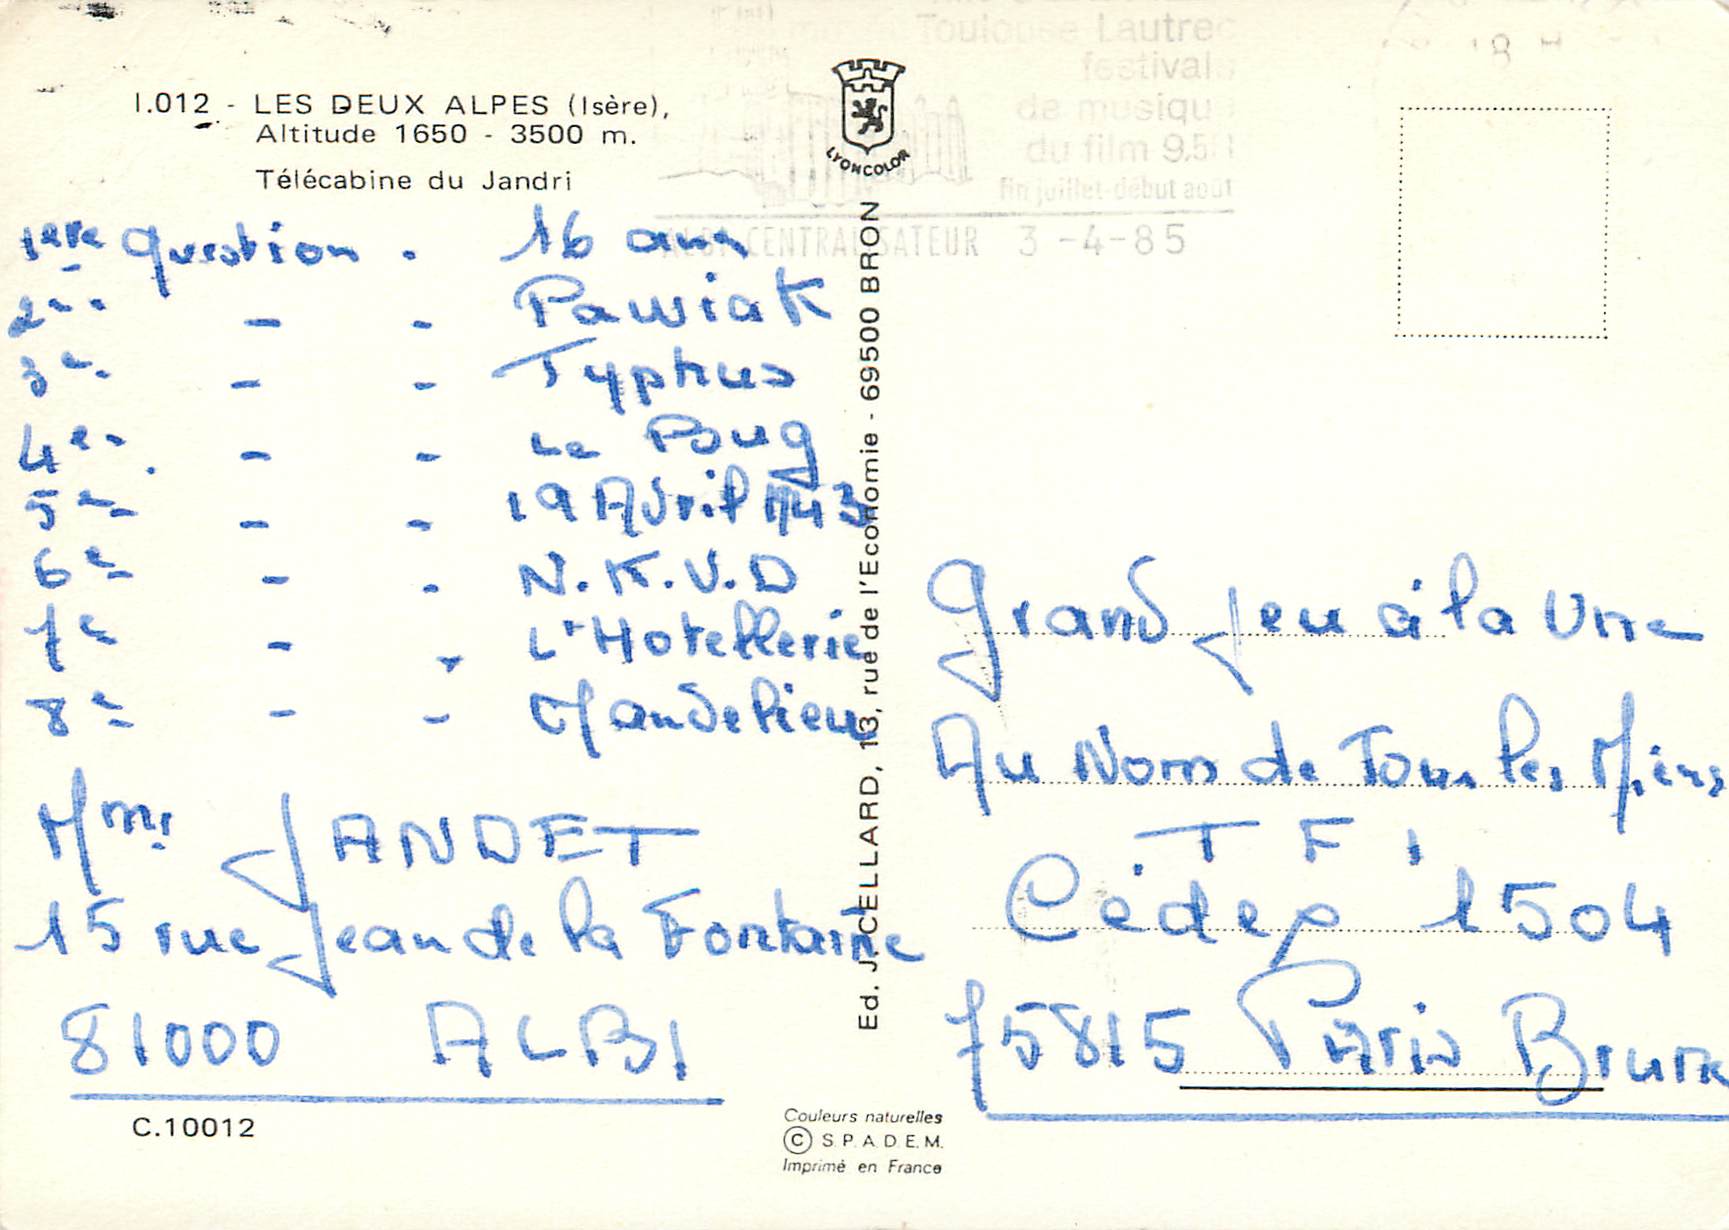 I.012 - LES DEUX ALPES (Isère),
Altitude 1650 - 3500 m.
Télécabine du Jandri
LYONCOLOR
Toulouse Lautrec
festival
de musiqu
du film 9.5
fin juillet-début août
ALBI CENTRALISATEUR 3 -4-85
1ere question . 16 ans
2e - - Pawiak
3e - - Typhus
4e - - Le Bug
5e - - 19 Avril 1943
6e - - N.K.V.D
7e - - L'Hotellerie
8e - - Mandelieu
Mme JANDET
15 rue Jean de la Fontaine
81000 ALBI
C.10012
Ed. J. CELLARD, 13, rue de l'Economie - 69500 BRON
Couleurs naturelles
© S.P.A.D.E.M.
Imprimé en France
Grand Jeu à la Une
Au Nom de Tous les Miens
T F 1
Cédex 1504
75815 Paris Brune